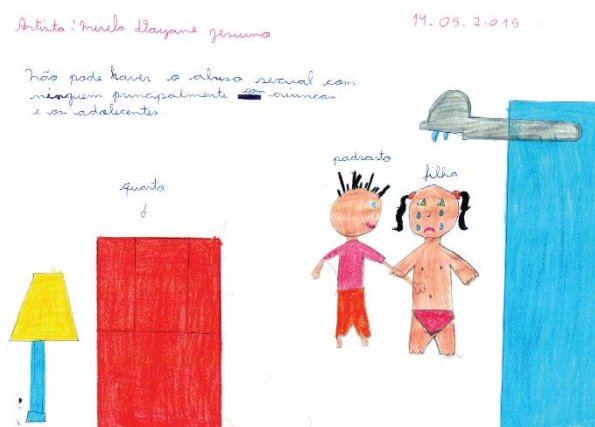 Artista: Mirela Dayane Jesuino
14.05.2.015
Não pode haver o abuso sexual com
ninguem principalmente com criancas
e os adolecentes.
padrasto
filha
quarto